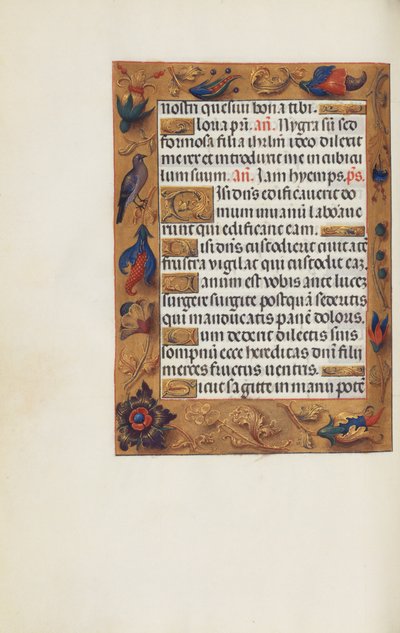 nostri quesiui bona tibi.
Gloria pri. añ. Nygra sũ sed
formosa filia ihrlm̃ ideo dilexit
me rex et introduxit me in cubicu
lum suum. añ. Iam hyems. ps.
Nisi dñs edificauerit do
mum in uanũ laboraue
runt qui edificant eam.
Nisi dñs custodierit ciuitatẽ
frustra vigilat qui custodit eã.
Vanum est vobis ante lucẽ
surgere surgite postquã sederitis
qui manducatis panẽ doloris.
Cum dederit dilectis suis
sompnũ ecce hereditas dñi filij
merces fructus ventris.
Sicut sagitte in manu potẽ